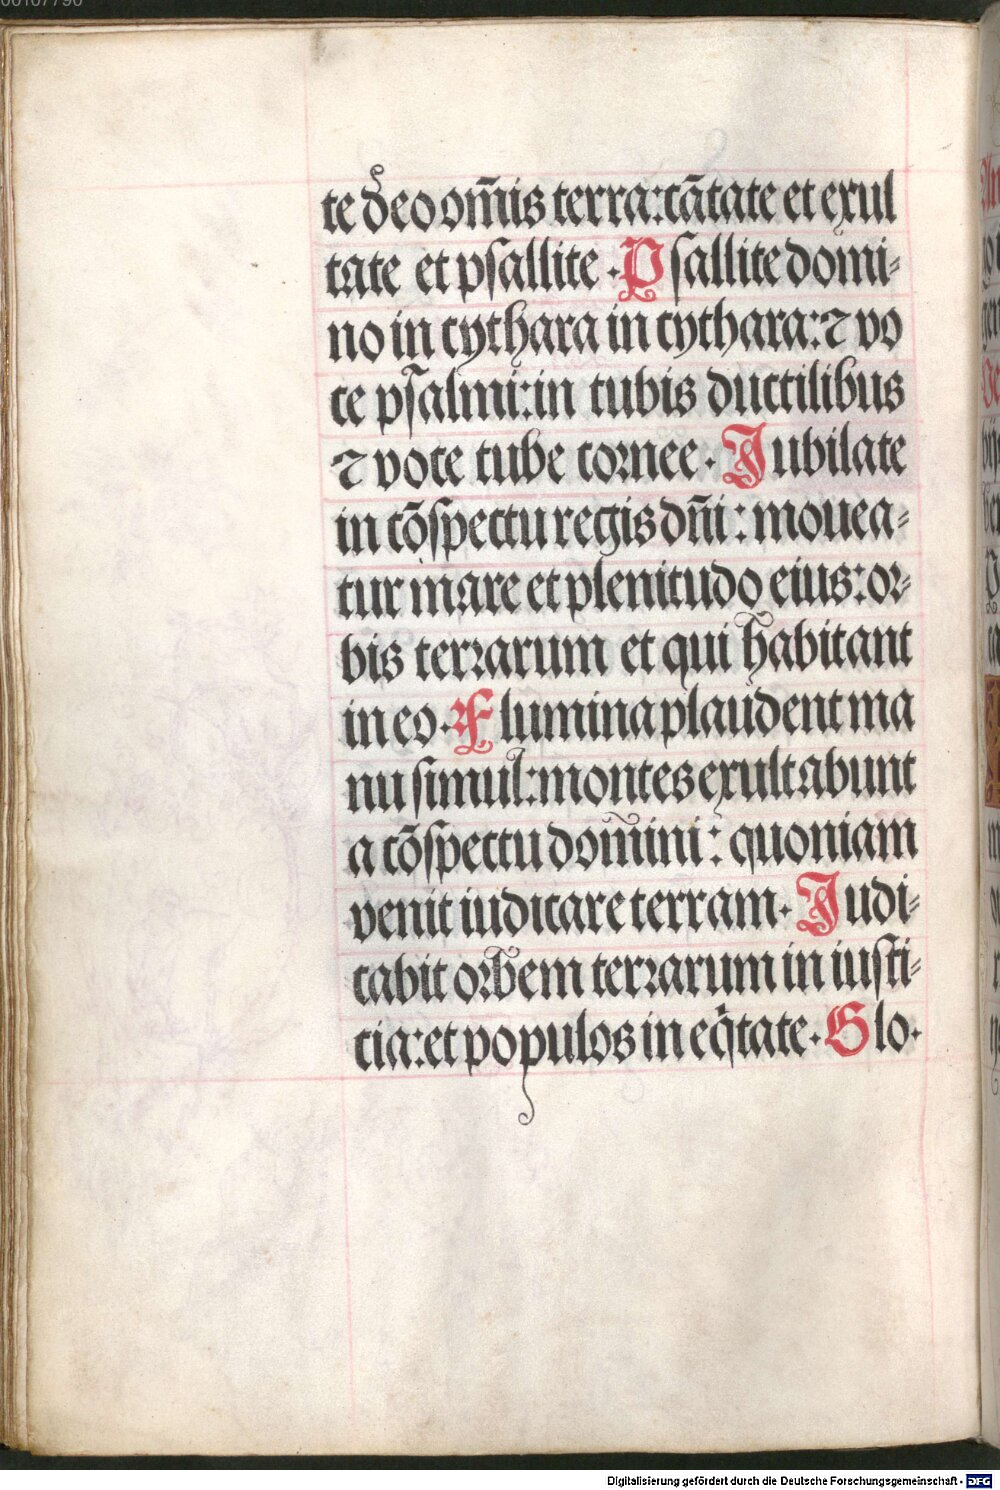 te deo om̄is terra: cātate et exul
tate et psallite · Psallite domi-
no in cythara in cythara: ⁊ vo
ce psalmi: in tubis ductilibus
⁊ voce tube cornee · Iubilate
in cōspectu regis dn̄i : mouea-
tur mare et plenitudo eius: or-
bis terrarum et qui habitant
in eo · Flumina plaudent ma
nu simul: montes exultabunt
a cōspectu domini : quoniam
venit iudicare terram · Iudi-
cabit orbem terrarum in iusti-
cia: et populos in eq̇tate · Glo·
Digitalisierung gefördert durch die Deutsche Forschungsgemeinschaft - DFG